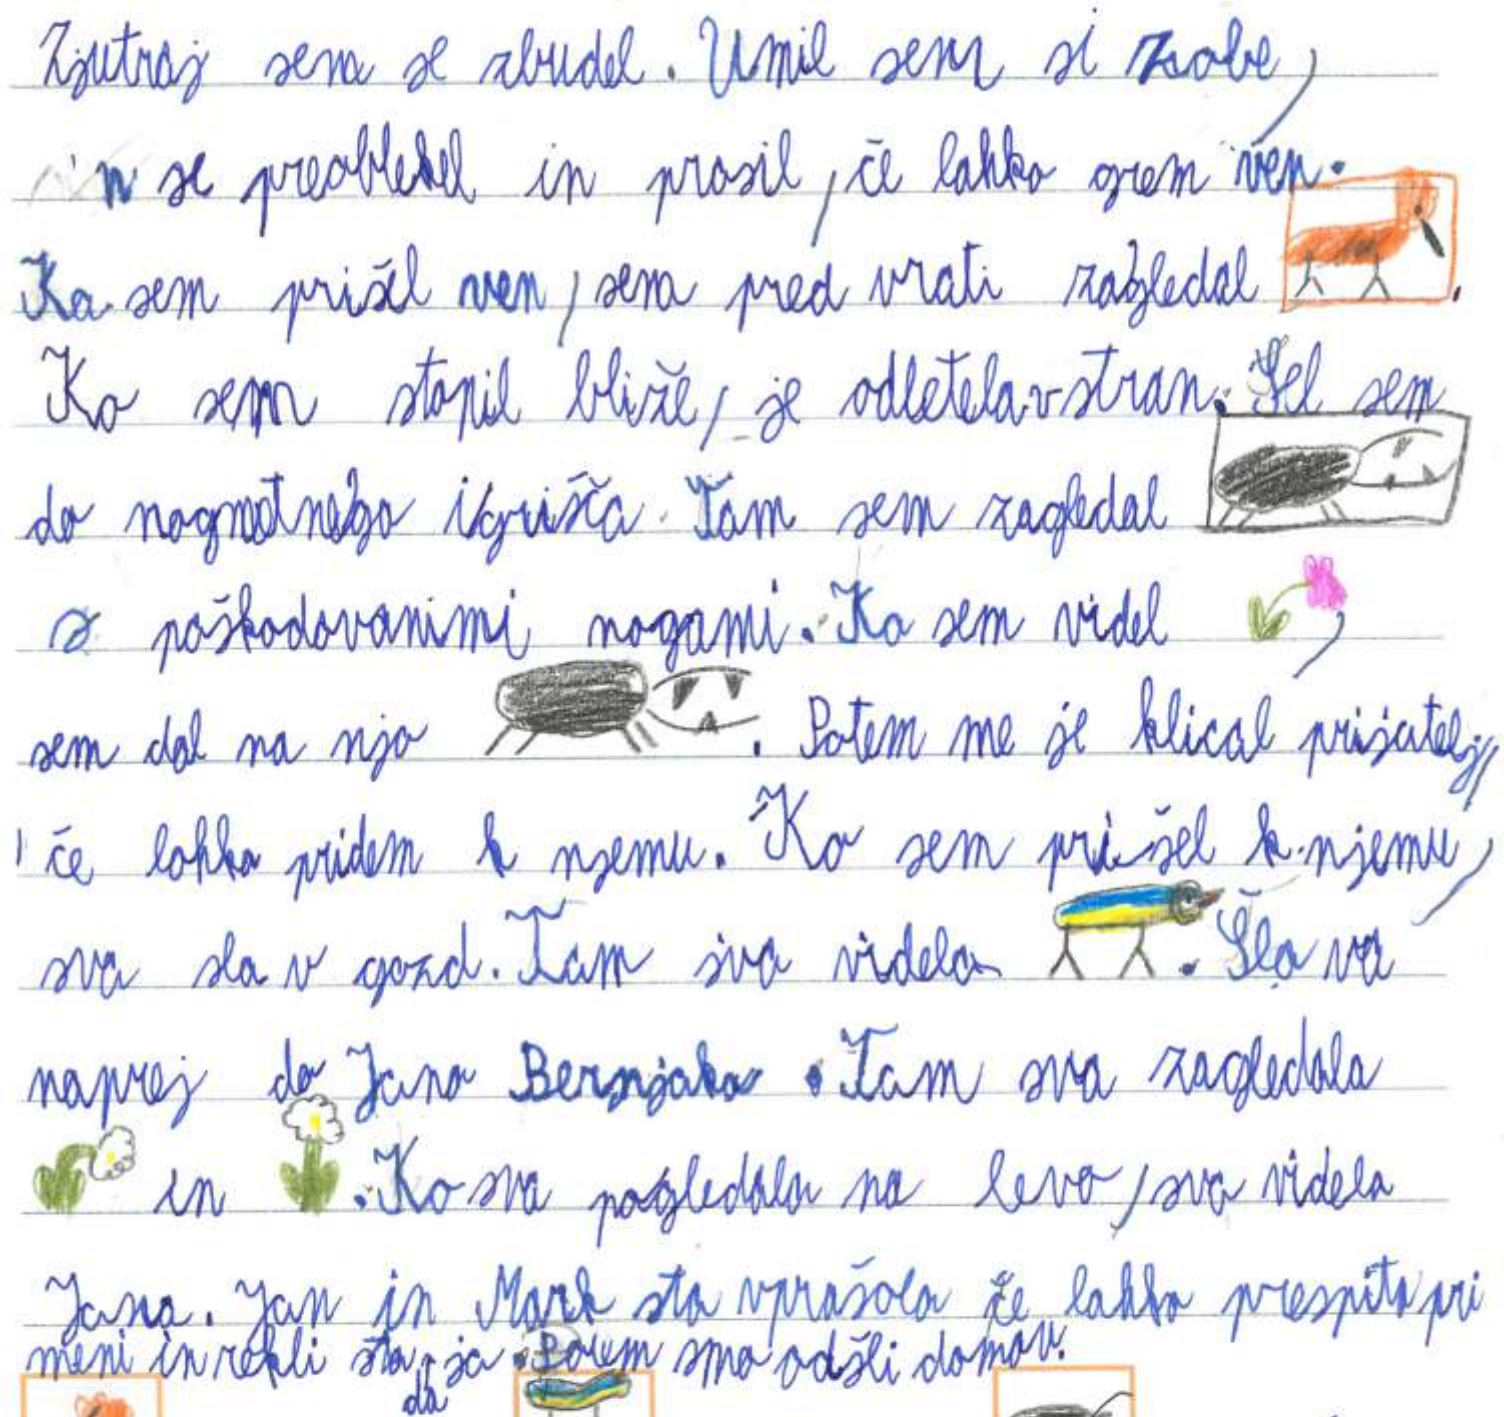 Zjutraj sem se zbudel. Umil sem si zobe,
in se preoblekel in prosil, če lahko grem ven.
Ko sem prišel ven, sem pred vrati zagledal .
Ko sem stopil bliže, je odletela vstran. Šel sem
do nogmetnega igrišča. Tam sem zagledal
s poškodovanimi nogami. Ko sem videl ,
sem dal na njo . Potem me je klical prijatelj,
če lahko pridem k njemu. Ko sem prišel k njemu,
sva sla v gozd. Tam sva videla . Šla va
naprej do Jana Bernjaka. Tam sva zagledala
in . Ko sva pogledala na levo, sva videla
Jana. Jan in Mark sta vprašala če lahko prespita pri
meni in rekli sta, ja. Potem smo odšli domov.
da